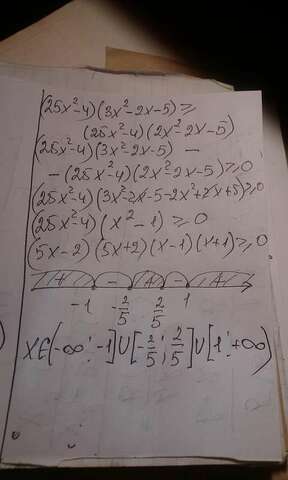 (25x²-4)(3x²-2x-5)≥
(25x²-4)(2x²-2x-5)
(25x²-4)(3x²-2x-5) -
-(25x²-4)(2x²-2x-5)≥0
(25x²-4)(3x²-2x-5-2x²+2x+5)≥0
(25x²-4)(x²-1)≥0
(5x-2)(5x+2)(x-1)(x+1)≥0
+ - + - +
-1 -2/5 2/5 1
XE(-∞;-1]U[-2/5;2/5]U[1;+∞)